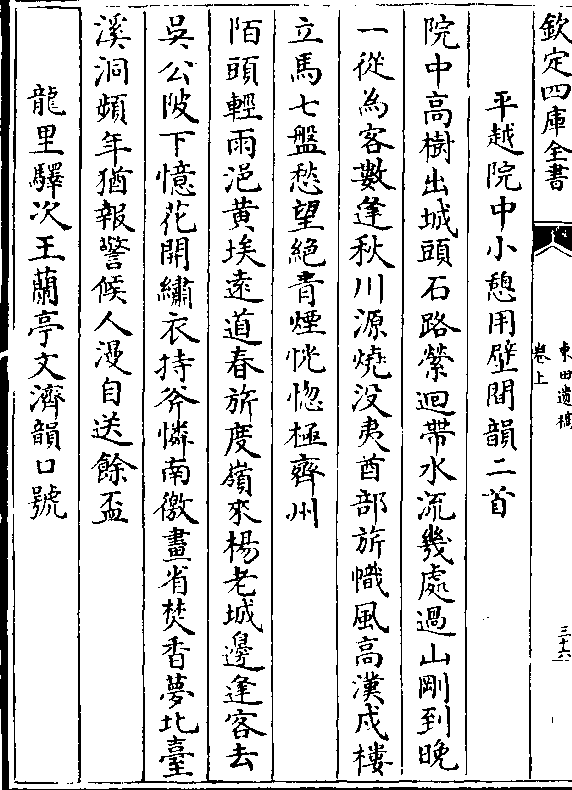 欽定四庫全書
東田遺稿
卷上
三十六
平越院中小憩用壁間韻二首
院中高樹出城頭石路縈迴帶水流幾處過山剛到晚
一從為客數逢秋川源燒沒夷酋部旂幟風高漢戍樓
立馬七盤愁望絕青煙恍惚極齊州
陌頭輕雨浥黄埃逺道春旂度嶺來楊老城邊逢客去
吳公陂下憶花開繡衣持斧憐南徼畫省焚香夢北臺
溪洞頻年猶報警候人漫自送餘盃
龍里驛次王蘭亭文濟韻口號